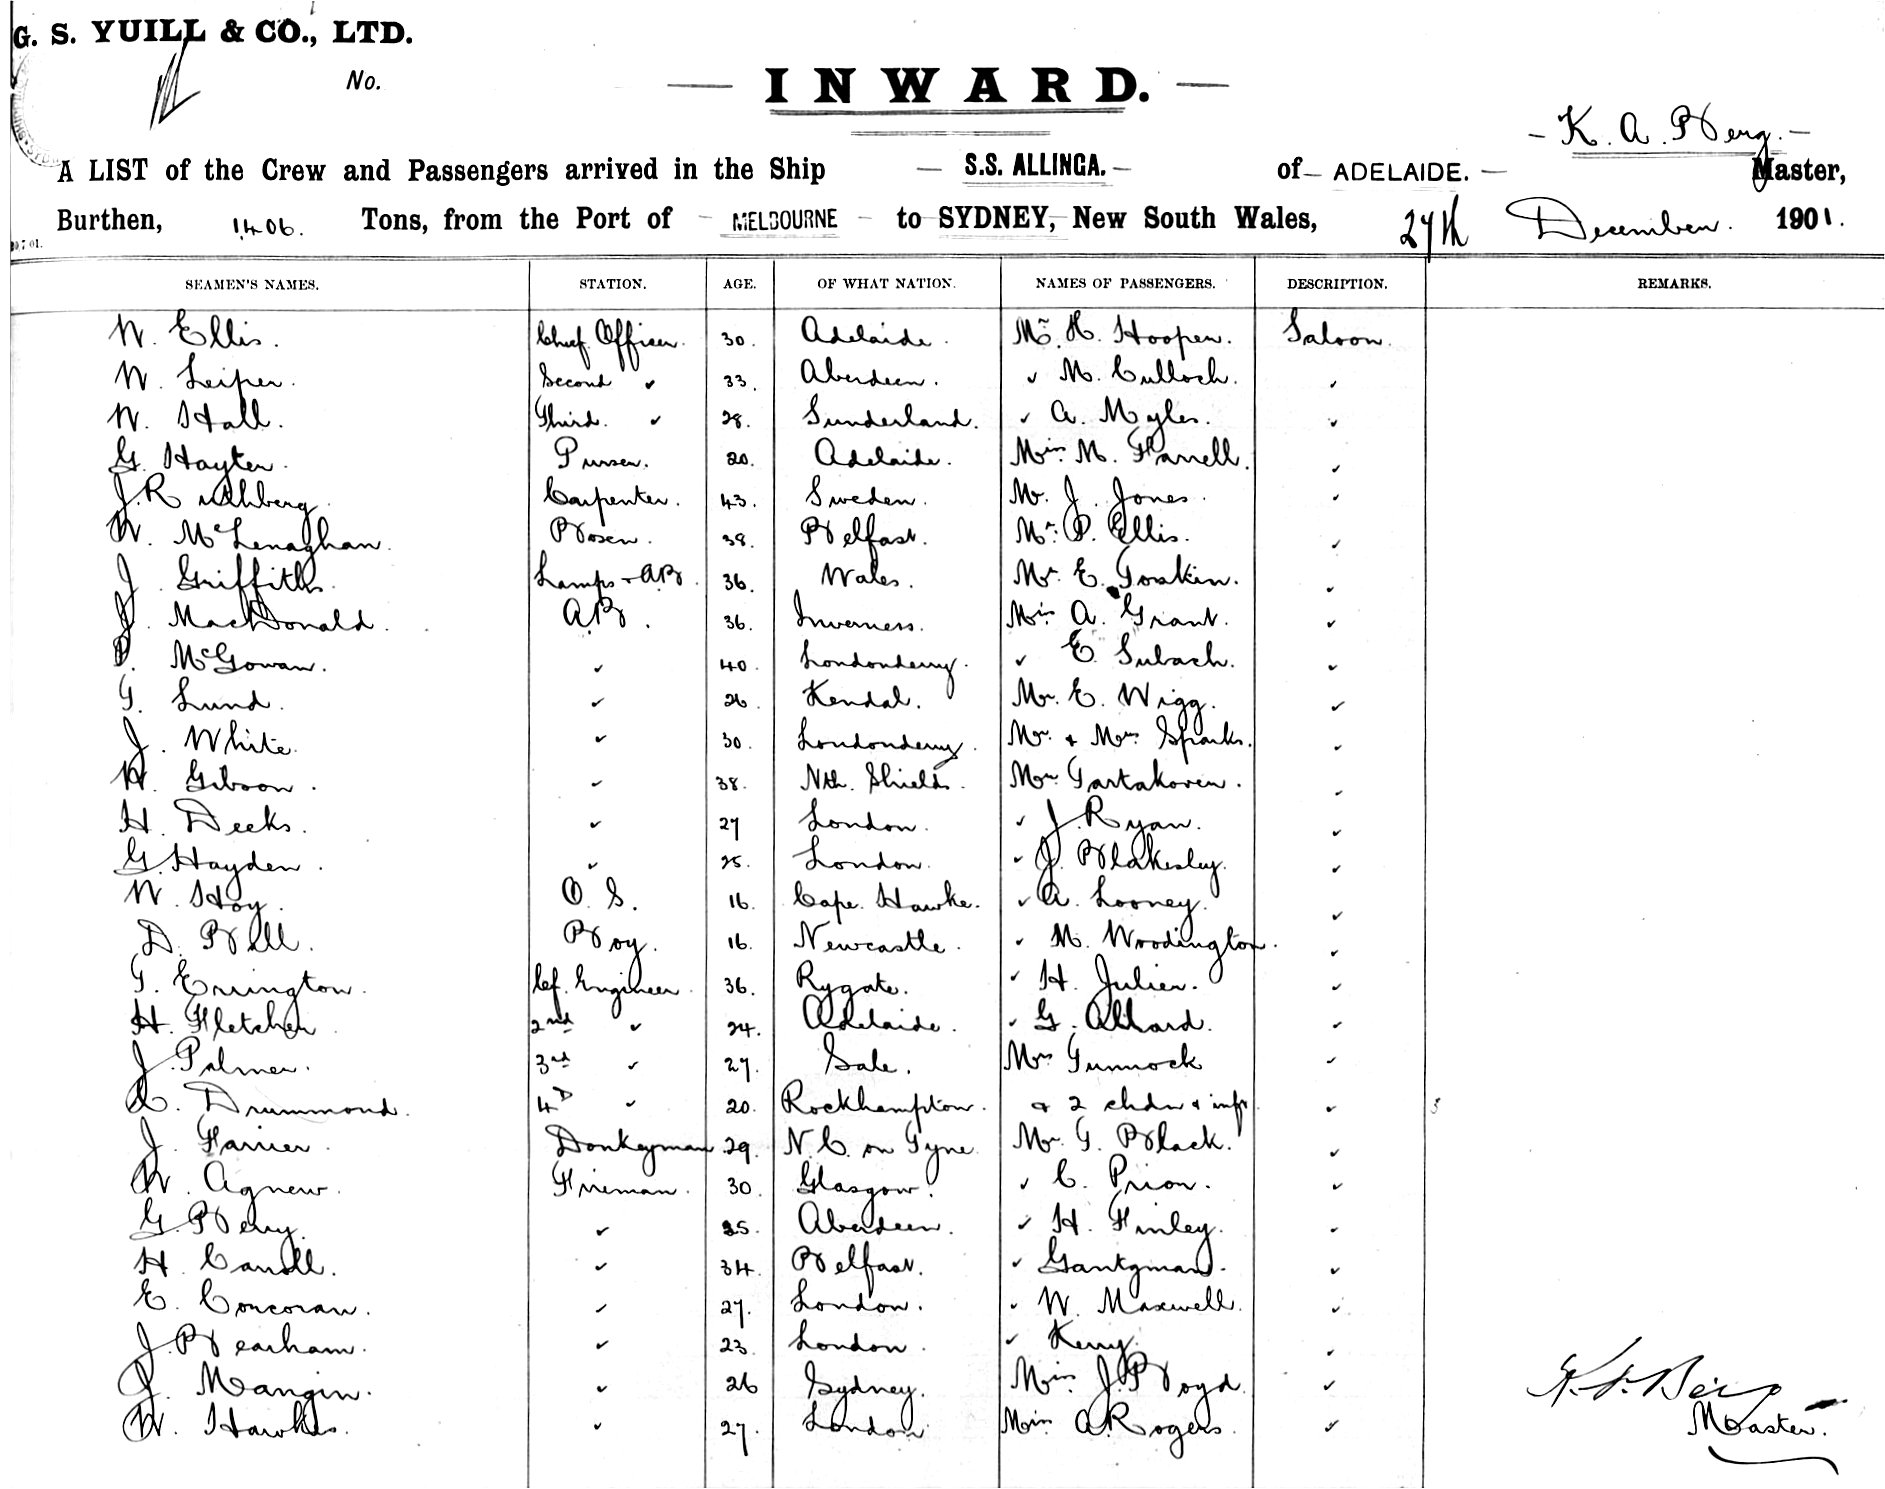 G. S. YUILL & CO., LTD.
No.
— INWARD. —
- K. A. Berg. -
A LIST of the Crew and Passengers arrived in the Ship — S.S. ALLINGA. — of — ADELAIDE. — Master,
Burthen, 1406. Tons, from the Port of - MELBOURNE - to SYDNEY, New South Wales, 27th December. 1901.
SEAMEN'S NAMES. STATION. AGE. OF WHAT NATION. NAMES OF PASSENGERS. DESCRIPTION. REMARKS.
W. Ellis. Chief Officer. 30. Adelaide. Mr. H. Hooper. Saloon.
W. Leiper. Second ✓ 33. Aberdeen. ✓ M. Culloch. ✓
W. Hall. Third. ✓ 28. Sunderland. ✓ A. Myles. ✓
G. Hayter. Purser. 20. Adelaide. Miss M. Farrell. ✓
J. R Carpenter. 43. Sweden. Mr. J. Jones. ✓
W. McLenaghan. Bosen. 38. Belfast. Mr. P. Ellis. ✓
J. Griffiths. Lamps + AB. 36. Wales. Mr. E. Goskin. ✓
J. MacDonald. AB. 36. Inverness. Miss A. Grant. ✓
P. McGowan. ✓ 40. Londonderry. ✓ E. Subach. ✓
G. Lund. ✓ 26. Kendal. Mr. E. Wigg. ✓
J. White. ✓ 30. Londonderry. Mr. + Mrs Sparks. ✓
W. Gibson. ✓ 38. Nth. Shields. Mr Tartakover. ✓
H. Deeks. ✓ 27 London. ✓ J. Ryan. ✓
G. Hayden. ✓ 25. London. ✓ J. Blakesley. ✓
W. Hoy. O. S. 16. Cape. Hawke. ✓ A. Looney. ✓
D. Bell. Boy. 16. Newcastle. ✓ M. Woodington. ✓
T. Errington. Cf. Engineer. 36. Rygate. ✓ H. Julier. ✓
H. Fletcher 2nd ✓ 24. Adelaide. ✓ G. Allard. ✓
J. Palmer. 3rd ✓ 27. Sale. Mrs Gunnock ✓
D. Drummond. 4D ✓ 20. Rockhampton. + 2 chdn + inft ✓ 3
J. Farrier. Donkeyman 29. N. C. on Tyne. Mr. G. Black. ✓
W. Agnew. Fireman. 30. Glasgow. ✓ C. Prior. ✓
G. Berry. ✓ 25. Aberdeen. ✓ H. Finley. ✓
H. Carroll. ✓ 34. Belfast. ✓ Gantzman. ✓
E. Corcoran. ✓ 27. London. ✓ W. Maxwell. ✓
J. Bearham. ✓ 23. London. ✓ Kerry. ✓
J. Mangin. ✓ 26 Sydney. Miss. J. Boyd. ✓
W. Hawkes. ✓ 27. London Miss A. Rogers. ✓
K. A. Berg
Master.